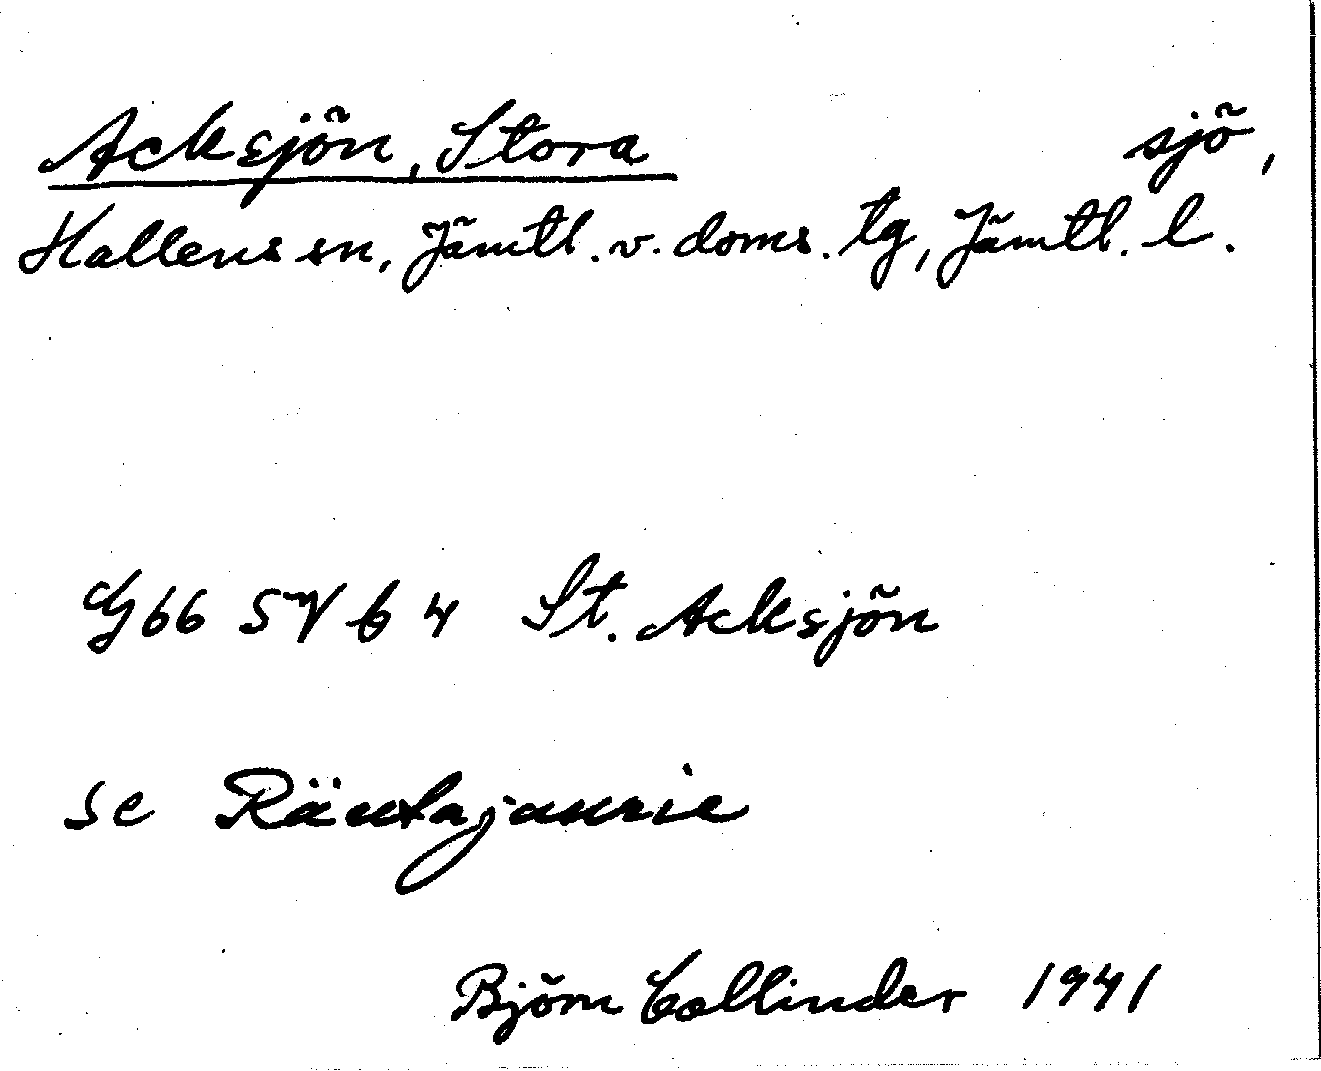 Acksjön, Stora sjö,
Hallens sn, Jämtl. v. doms. tg, Jämtl. l.
G66 SV b 4 St. Acksjön
se Räntajaurie
Björn Collinder 1941